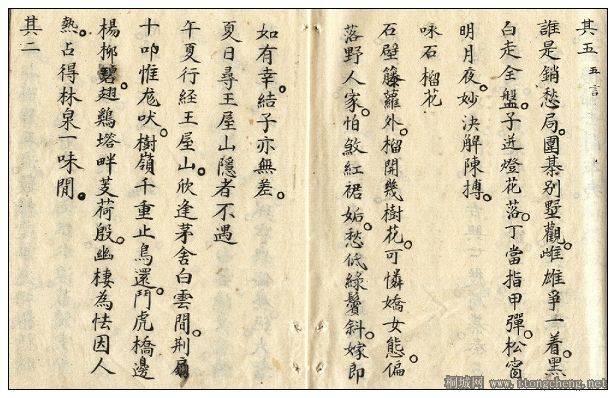 其五 五言
誰是銷愁局。圍棊別墅觀。雌雄爭一着。黑
白走全盤。子迸燈花落。丁當指甲彈。松窗
明月夜。妙決解陳摶。
咏石榴花
石壁籐蘿外。榴開幾樹花。可憐嬌女態。偏
落野人家。怕敘紅裙妬。愁低綠鬢斜。嫁郎
如有幸。結子亦無差。
夏日尋王屋山隱者不遇
午夏行経王屋山。欣逢茅舍白雲間。荆扉
十叩惟尨吠。樹嶺千重止鳥還。鬥虎橋邊
楊柳碧。翅鷄塔畔芰荷殷。幽棲為怯因人
熱。占得林泉一味閒。
其二
桐城网 www.itongcheng.net